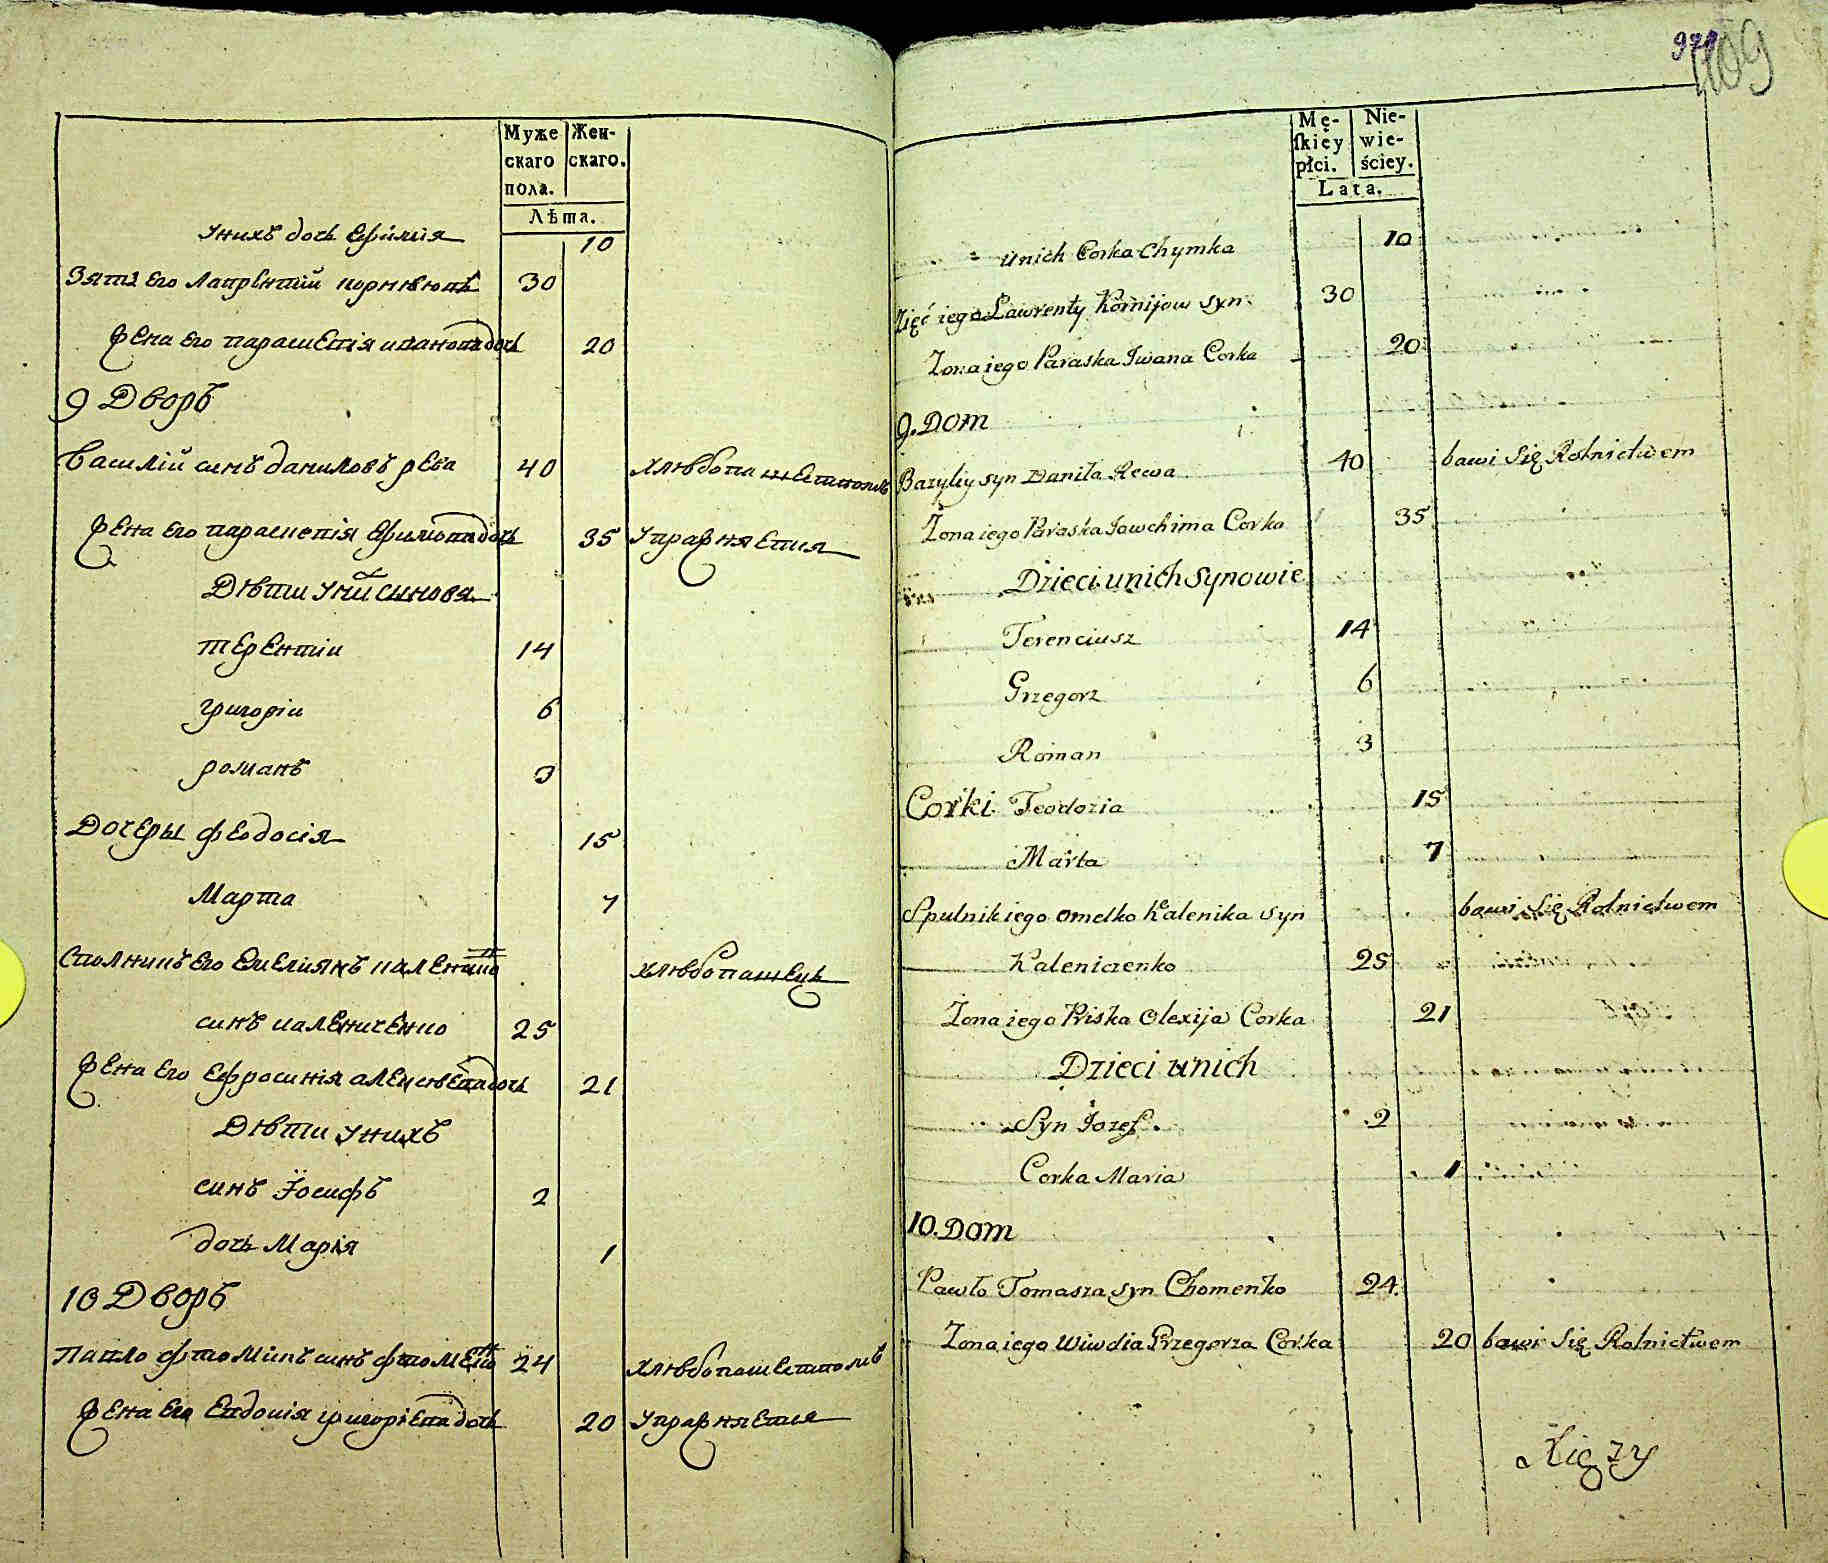 Муже
скаго
пола.
Жен-
скаго.
Лѣта.
унихъ дочь Ефимия 10
Зять его Лаврентий корнѣювъ 30
жена его параскевія ивановадочь 20
9 Дворъ
василій синъ даниловъ рева 40 хлѣбопашествомъ
жена его параскевія Ефимовадочь 35 упражняется
Дѣти унихъ синовя
терентіи 14
григоріи 6
романъ 3
Дочеры феодосія 15
Марта 7
сполникъ его Емелиянъ каленико
синъ калениченко 25 хлѣбопашецъ
жена его Ефросинія алексѣевадочь 21
Дѣти унихъ
синъ Іосифъ 2
дочь Марія 1
10 Дворъ
павло фтомінъ синъ фтоменко 24 хлѣбопашествомъ
жена его Евдокія григоріевадочь 20 упражняется
109
Mę-
ſkiey
płci.
Nie-
wie-
ściey.
Lata.
unich Corka Chymka 10
Zięć iego Lawrenty Kornijow syn 30
Zona iego Paraska Jwana Corka 20
9. Dom
Bazyliy syn Daniła Rewa 40 bawi się Rolnictwem
Zona iego Paraska Jowchima Corka 35
Dzieci unich Synowie
Terenciusz 14
Grzegorz 6
Roman 3
Corki Teodozia 15
Marta 7
Spulnik iego Omelko Kalenika syn bawi się Rolnictwem
Kaleniczenko 25
Zona iego Priska Olexija Corka 21
Dzieci unich
Syn Jozef. 2
Corka Maria 1
10. Dom
Pawło Tomasza syn Chomenko 24.
Zona iego Wiwdia Grzegorza Corka 20 bawi się Rolnictwem
Xięzy